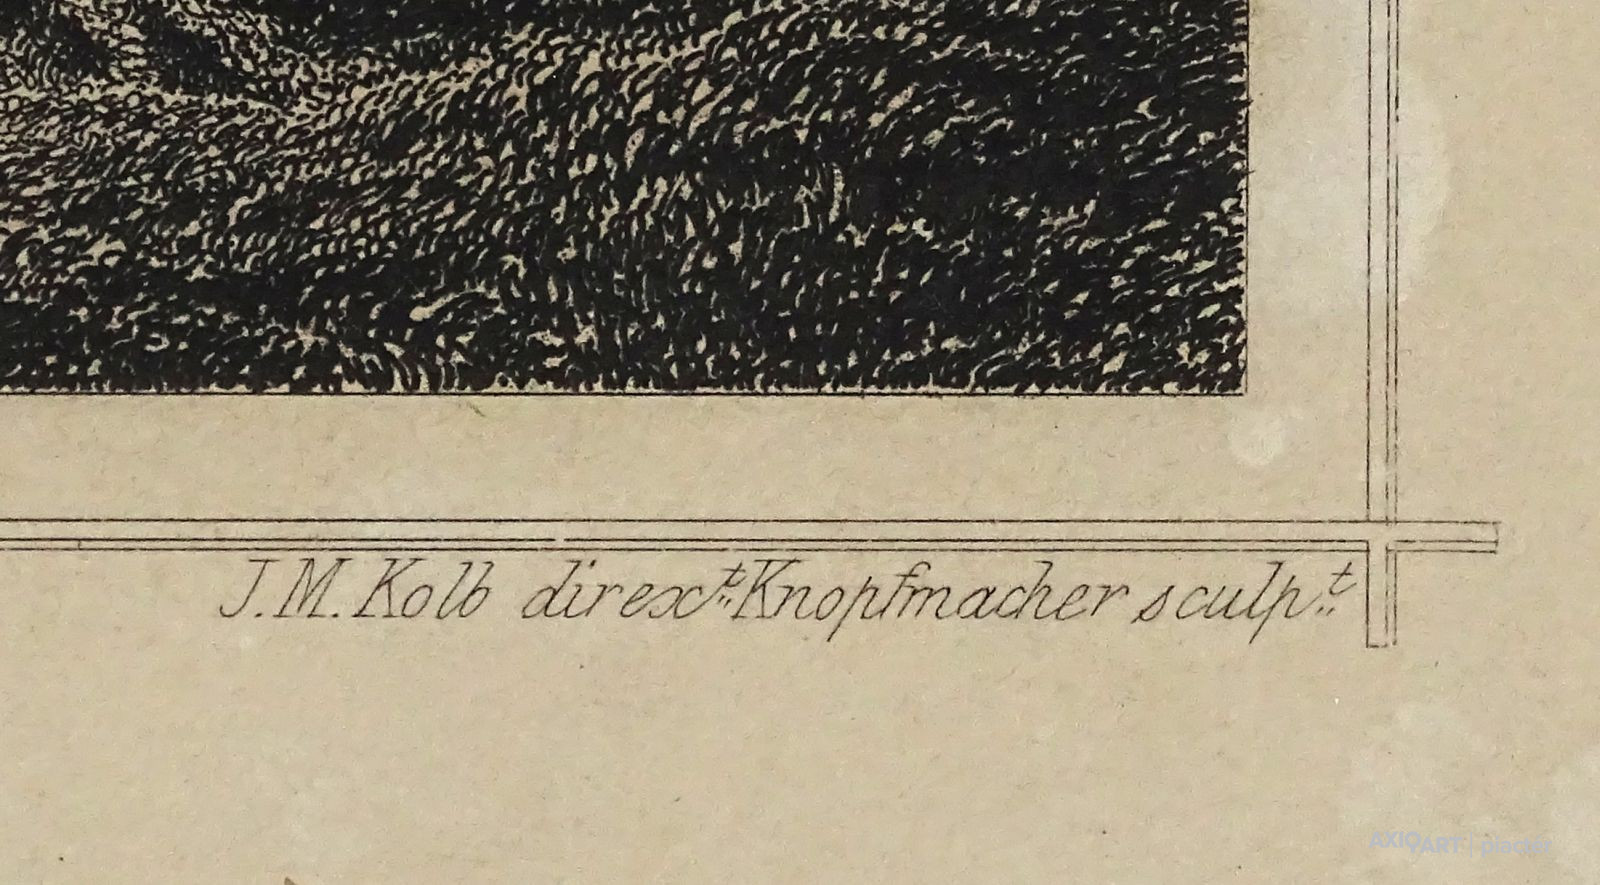 J. M. Kolb direx.t Knopfmacher sculp.t
AXIOART